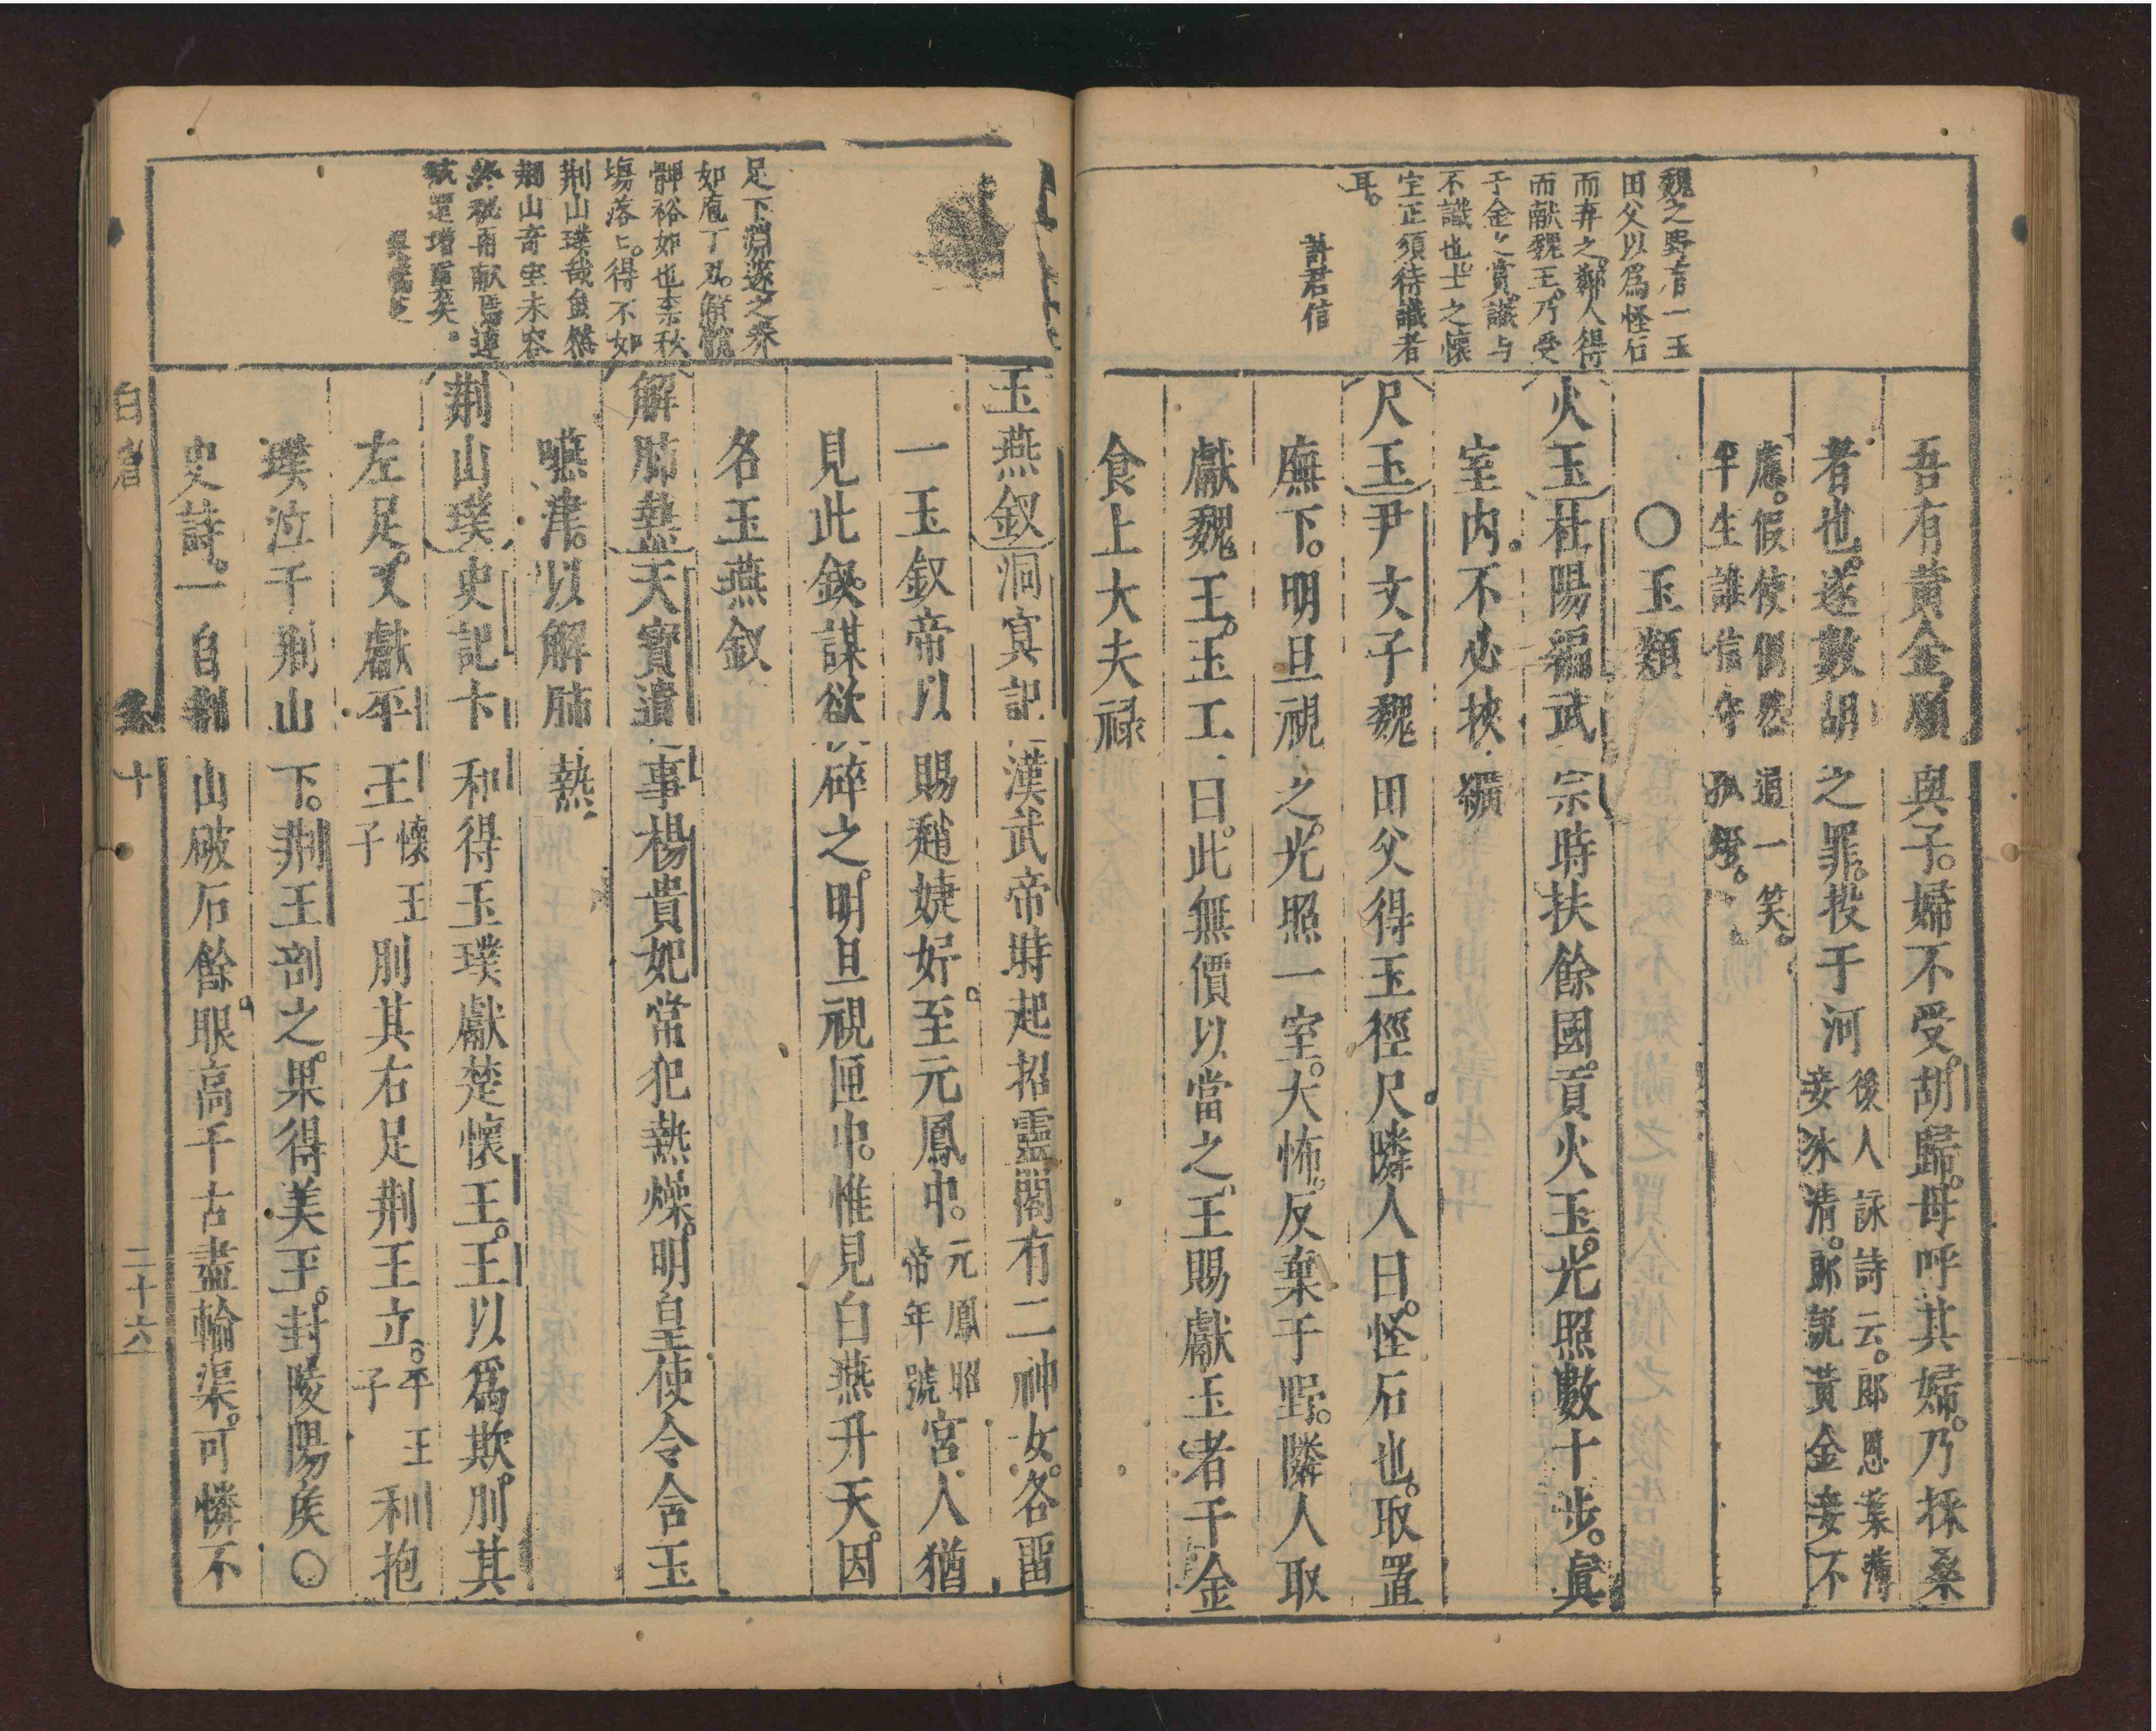 魏之野有一玉
田父以爲怪石
而弃之鄰人得
而献魏王乃受
千金之賞識与
不識也士之懷
宝正須待識者
耳。
許君信
吾有黄金願與子。婦不受。胡歸。母呼其婦。乃採桑
者也。遂數胡之罪。投于河
後人詠詩云。郎恩葉薄
妾冰清。郎說黃金妾不
應。假使偶然通一笑。
半生誰信守孤燈。
〇玉類
火玉杜陽編武宗時扶餘國。貢火玉。光照數十步。眞
室内不必挾纊
尺玉尹文子魏田父得玉徑尺隣人曰。怪石也。取置
廡下。明旦視之。光照一室。大怖。反棄于野。隣人取
獻魏王。玉工曰。此無價以當之。王賜獻玉者千金
食上大夫禄
足下淵邃之養
如庖丁刃。解慨
髀裕如也秦秋
塲落上。得不如
荆山璞哉雖然
荆山奇宝未容
終秘再献焉連
城還增價矣。
玉燕釵洞冥記漢武帝時起招靈閣有二神女。各畱
一玉釵帝以賜趙婕妤。至元鳳中。
元鳳昭
帝年號
宮人猶
見此釵。謀欲碎之。明旦視匣中。惟見白燕升天。因
名玉燕釵
解肺熱天寳遺事楊貴妃常犯熱燥。明皇使令含玉
嚥津。以解肺熱
荆山璞史記卞和得玉璞獻楚懷王。王以爲欺。刖其
左足。又獻平王
懷王
子
刖其右足荆王立。
平王
子
和抱
璞泣于荆山下。荆王剖之。果得美玉。封陵陽矦〇
史詩。一自荆山破石餘。眼高千古盡輸渠。可憐不
白眉
十
二十六